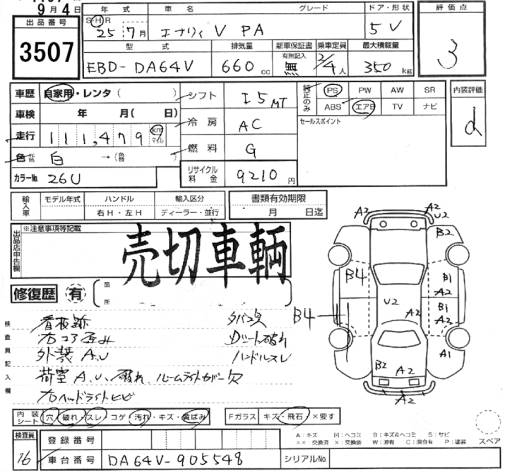 9月4日
年式 車名 グレード ドア・形状 評価点
出品番号 SHR 25年7月 エブリィ V PA 5V
3507
型式 排気量 新車保証書 乗車定員 最大積載量
EBD-DA64V 660cc 無 2/4人 350kg
3
車歴 自家用・レンタ( ) シフト I5MT PS PW AW SR 内装評価
車検 年 月( 日) 冷房 AC ABS エアB TV ナビ
走行 111,479 km 燃料 G セールスポイント d
色 白 →(色 )
カラーNo 26U リサイクル料金 9210円
輸入車 モデル年式 ハンドル 輸入区分 書類有効期限
右H・左H ディーラー・並行 月 日迄
※注意事項等記載
出品店申告欄
売切車輌
修復歴 有 箇所
検査員記入欄
看板跡 タバコ臭
右コアサポ歪み ダッシュト破れ
外装 A,U ハンドルスレ
荷室 A,U、破れ、ルームライトカバー欠
右ヘッドライトヒビ
A2 A2 U2 B2
B4 B4 U2 B1 A2 B2 A2
B2 A2 A1
A2
内装シート 穴・破れ・スレ・コゲ・汚れ・キズ・黄ばみ Fガラス キズ・飛石 ×要す
検査員 16 登録番号
車台番号 DA64V-905548 シリアルNo.
A:キズ U:ヘコミ B:キズ&ヘコミ S:サビ
××:交換済 ×:要交換 W:補修跡 C:腐食 P:塗装
スペア